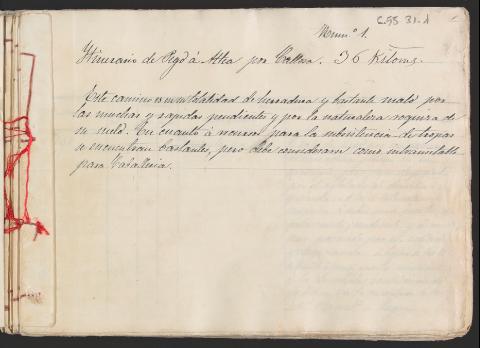 C.95 31-1
Num.º 1.
Itinerario de Pego á Altea por Callosa. 36 Kiloms.
Este camino es en su totalidad de herradura y bastante malo por
las muchas y rapidas pendientes y por la naturaleza roquiza de
su suelo. En cuanto á recursos para la subsistencia de tropas
se encuentran bastantes, pero debe considerarse como intransitable
para Caballeria.